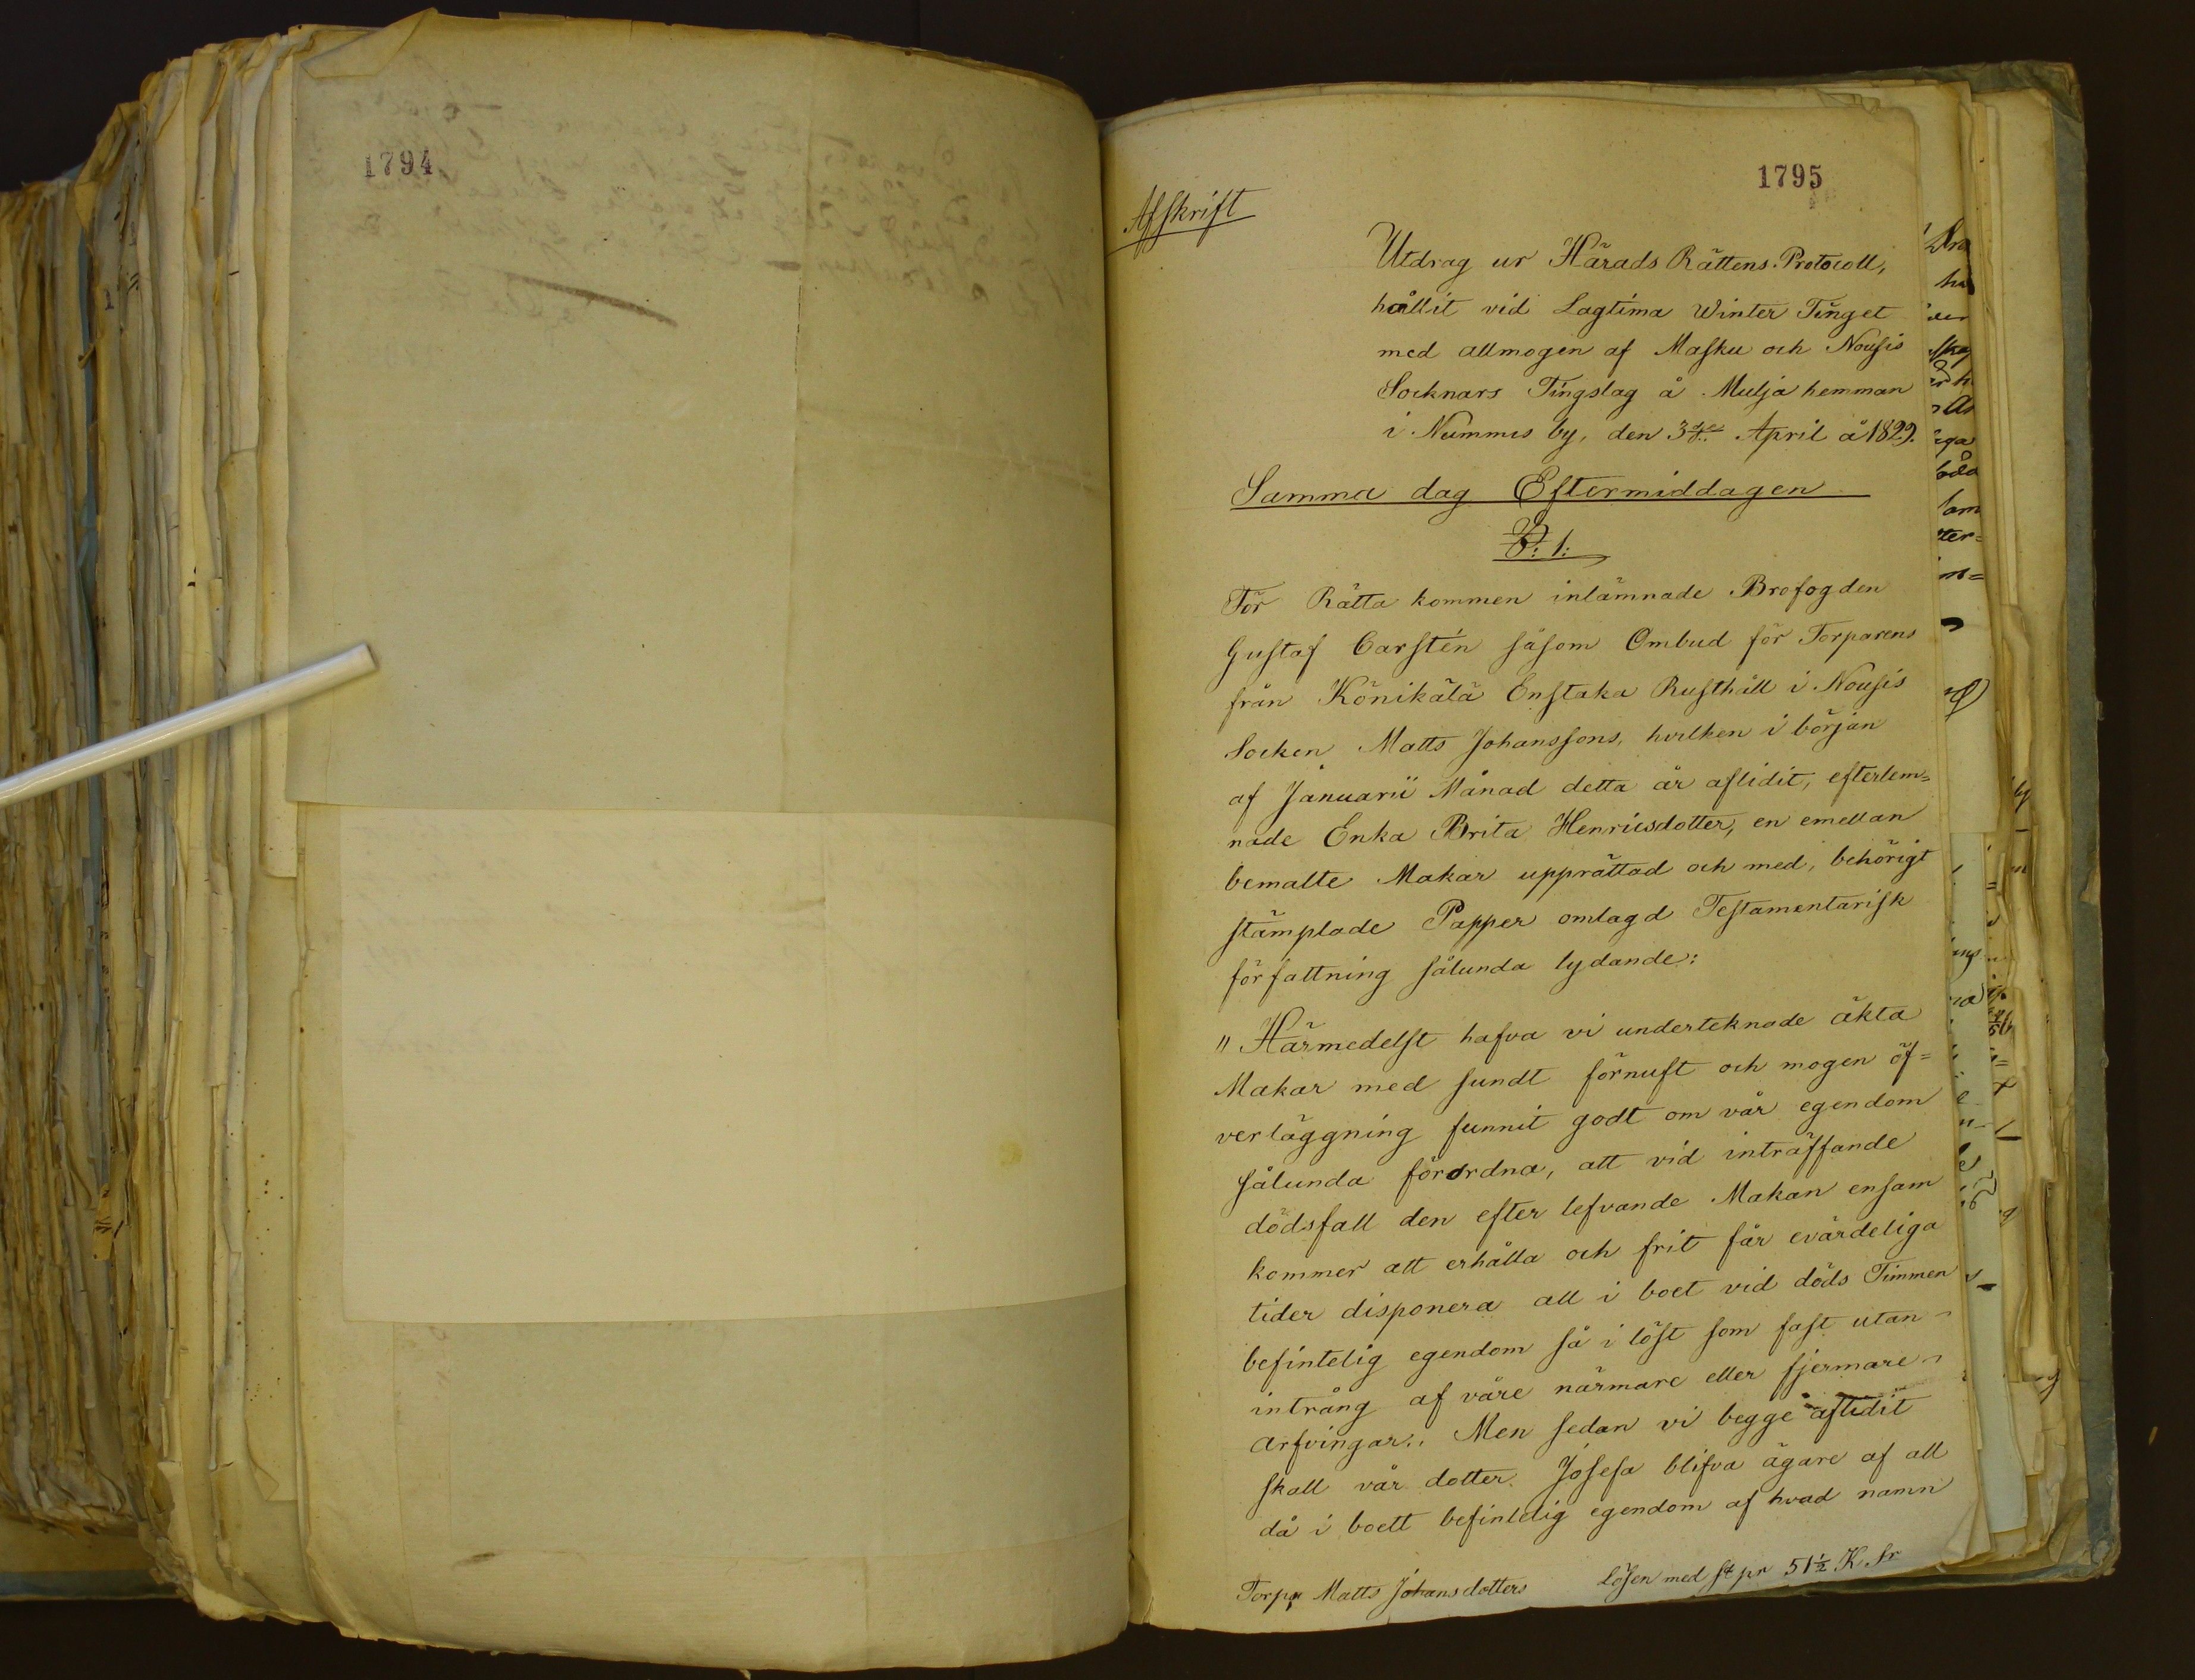 1794
1795
Afskrift
Utdrag ur Härads Rättens Protocoll,
hållit vid Lagtima Winter Tinget
med allmogen af Masku och Nousis
Socknars Tingslag å Mulja hemman
i Nummis by, den 3dje April å 1829.
Samma dag Eftermiddagen
§: 1:
För Rätta kommen inlämnade Brofogden
Gustaf Carstén såsom Ombud för Torparens
från Könikälä Enstaka Rusthåll i Nousis
Socken Matts Johanssons, hvilken i början
af Januarii Månad detta år aflidit, efterlem=
nade Enka Brita Henricsdotter, en emellan
bemalte Makar upprättad och med, behörigt
stämplade Papper omlagd Testamentarisk
författning sålunda lydande:
" Härmedelst hafva vi underteknade äkta
Makar med sundt förnuft och mogen öf=
verläggning funnit godt om vår egendom
sålunda förordna, att vid inträffande
dödsfall den efter lefvande Makan ensam
kommer att erhålla och frit får evärdeliga
tider disponera all i boet vid döds Timmen
befintelig egendom så i löst som fast utan
intrång af våre närmare eller fjermare
arfvingar.. Men sedan vi begge aflidit
skall vår dotter Josefa blifva ägare af all
då i boett befintelig egendom af hvad namn
Torpa Matts Johansdotters Lösen med st pr 51½ K. Sr